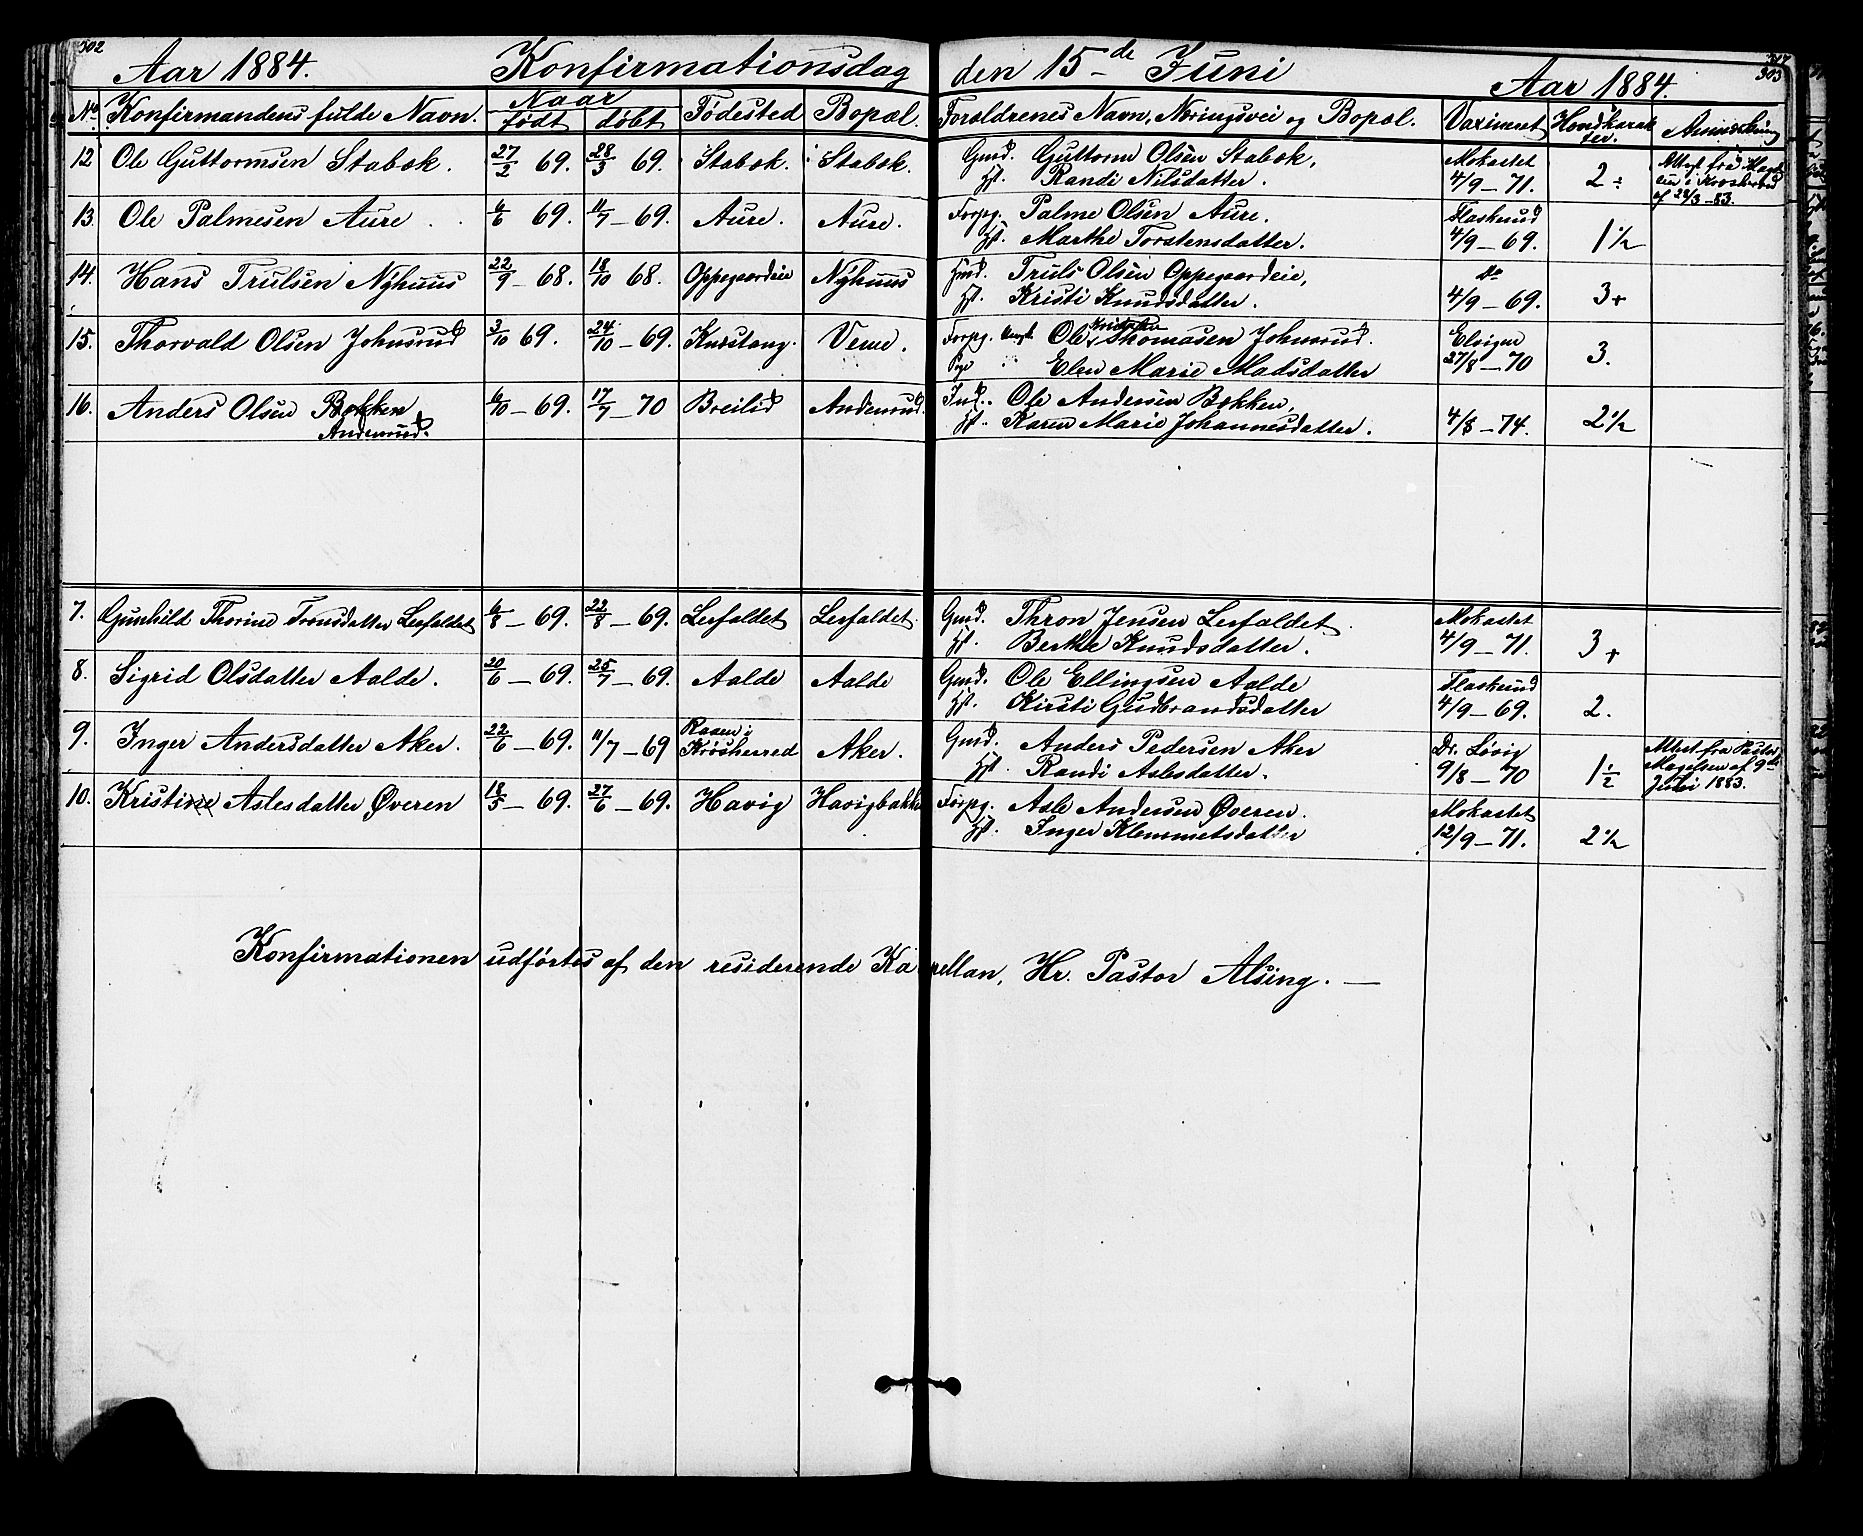 302
Aar 1884. Konfirmationsdag den 15de Juni Aar 1884. 303
No Konfirmandens fulde Navn. Naar født døbt Fødested Bopæl. Forældrenes Navn, Næringsvei og Bopæl. Vaxineret Hovdkarakter. Anmærkning
12 Ole Guttormsen Stabæk. 27/2 69. 28/3 69. Stabæk. Stabæk. Gmd. Guttorm Olsen Stabæk, Mokastet 2÷ Attest fra
Hst. Randi Nilsdatter. 4/9–71. i Krødsherred
af 22/3–83.
13. Ole Palmesen Aure 6/6 69. 11/7–69. Aure. Aure. Forpg. Palme Olsen Aure. Flaskrud 1½
Hst. Marthe Torstensdatter. 4/9–69.
14. Hans Trulsen Nÿhuus 22/9–68. 18/10 68. Oppegaardeie Nÿhuus Hmd. Truls Olsen Oppegaardeie, do 3+
Hst. Kristi Knudsdatter. 4/9–69.
15. Thorvald Olsen Johnsrud 3/10 69. 24/10–69. Knestang. Veme. Forpg. Ungk. Ole Kristian Thomasen Johnsrud. Elvigen 3.
Pige Elen Marie Madsdatter 27/8–70
16. Anders Olsen Bækken 6/10–69. 17/7–70 Breilid Andersrud. Ind. Ole Andersen Bækken, 2½
Andersrud. Hst. Karen Marie Johannesdatter. 4/8–74.
7. Gunhild Thorine Tronsdatter Lesfaldet 6/8–69. 22/8–69. Lesfaldet Lesfaldet. Gmd. Thron Jensen Lesfaldet. Mokastet 3+
Hst. Berthe Knudsdatter. 4/9–71.
8. Sigrid Olsdatter Aalde. 20/6–69. 25/7–69. Aalde Aalde Gmd. Ole Ellingsen Aalde Flaskrud 2.
Hst. Kirsti Gudbrandsdatter 4/9–69.
9. Inger Andersdatter Aker. 22/6–69. 11/7–69 Raaen i Krødsherred Aker. Gmd. Anders Pedersen Aker Dr. Løvig 1½ Attest fra Pastor
Hst. Randi Aslesdatter. 9/8–70 Magelsen af 9de
Juli 1883.
10. Kristine Aslesdatter Øveren 18/5–69. 27/6–69. Havig Havigbakken Forpg. Asle Andersen Øveren. Mokastet 2½
Hst. Inger Klemmetsdatter 12/9–71.
Konfirmationen udførtes af den residerende Kapellan, Hr. Pastor Alsing.—